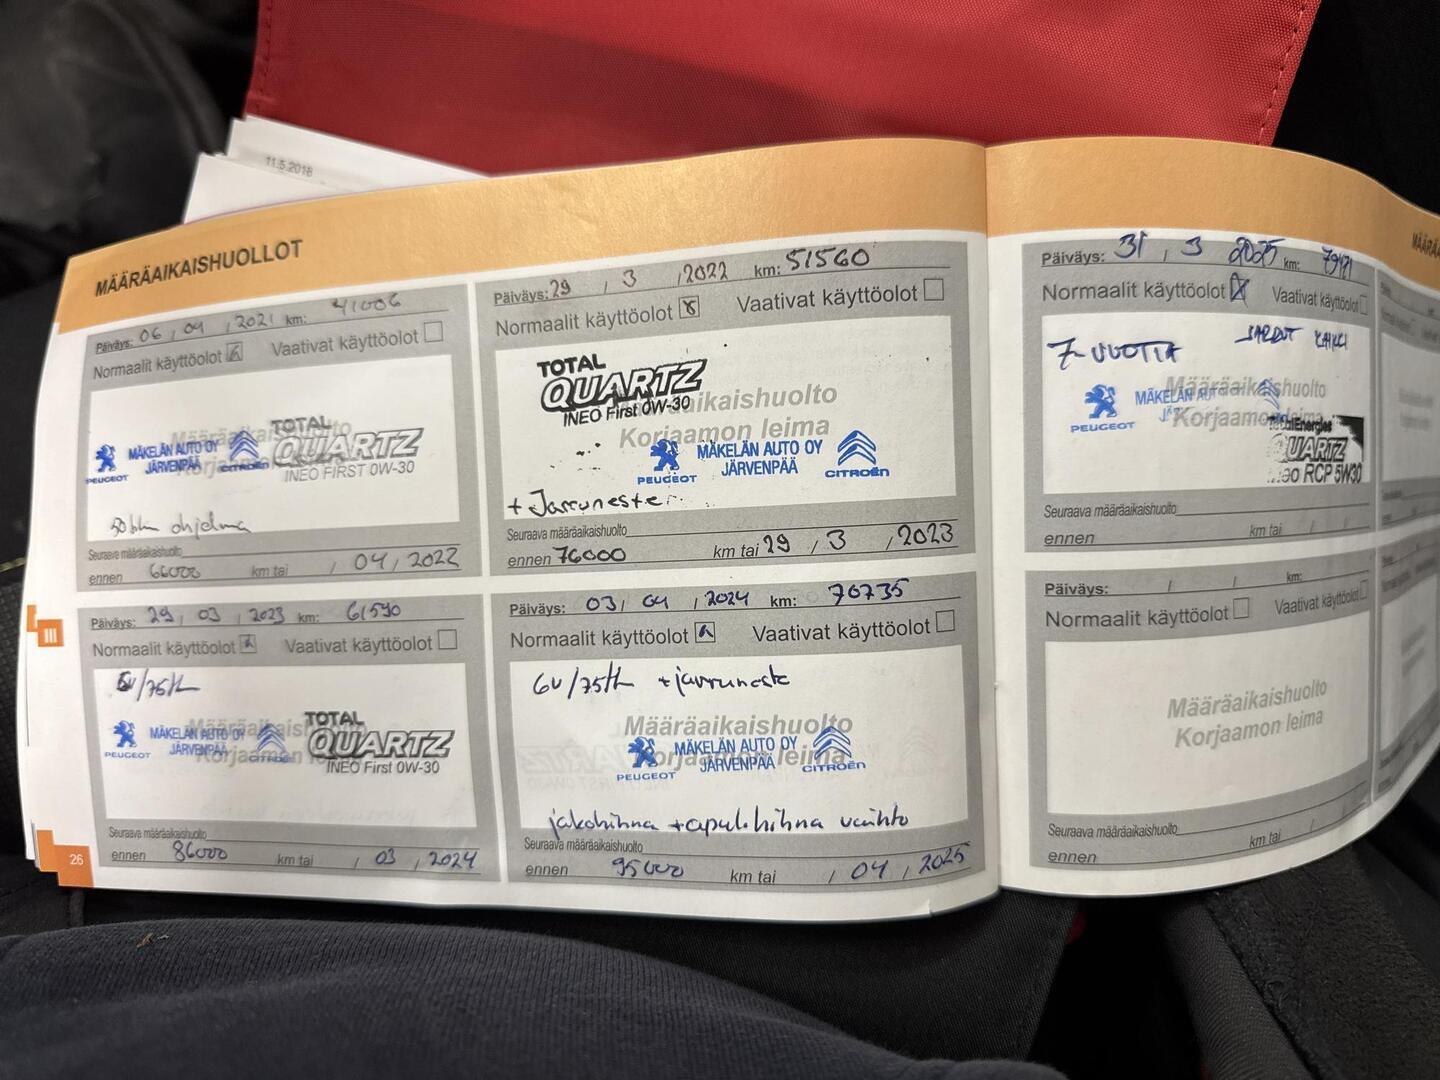 11.5.2018
MÄÄRÄAIKAISHUOLLOT
Päiväys: 06 / 04 / 2021 km: 41006
Normaalit käyttöolot Vaativat käyttöolot
Määräaikaishuolto
Korjaamon leima
PEUGEOT MÄKELÄN AUTO OY JÄRVENPÄÄ CITROËN
TOTAL
QUARTZ
INEO FIRST 0W-30
50tkm ohjelma
Seuraava määräaikaishuolto
ennen 66000 km tai / 04 / 2022
Päiväys: 29 / 3 / 2022 km: 51560
Normaalit käyttöolot Vaativat käyttöolot
TOTAL
QUARTZ
INEO First 0W-30
Määräaikaishuolto
Korjaamon leima
PEUGEOT MÄKELÄN AUTO OY JÄRVENPÄÄ CITROËN
+ Jarruneste
Seuraava määräaikaishuolto
ennen 76000 km tai 29 / 3 / 2023
Päiväys: 29 / 03 / 2023 km: 61590
Normaalit käyttöolot Vaativat käyttöolot
Määräaikaishuolto
Korjaamon leima
PEUGEOT MÄKELÄN AUTO OY JÄRVENPÄÄ CITROËN
TOTAL
QUARTZ
INEO First 0W-30
Seuraava määräaikaishuolto
ennen 86000 km tai / 03 / 2024
Päiväys: 03 / 04 / 2024 km: 70735
Normaalit käyttöolot Vaativat käyttöolot
6v/75tkm + jarruneste
Määräaikaishuolto
Korjaamon leima
PEUGEOT MÄKELÄN AUTO OY JÄRVENPÄÄ CITROËN
jakohihna + apul.hihna vaihto
Seuraava määräaikaishuolto
ennen 95000 km tai / 04 / 2025
III
26
Päiväys: 31 / 3 2025 km:
Normaalit käyttöolot Vaativat käyttöolot
7-VUOTTA KAIKKI
Määräaikaishuolto
Korjaamon leima
PEUGEOT MÄKELÄN AUTO
QUARTZ
RCP 5W30
Seuraava määräaikaishuolto
ennen km tai / /
Päiväys: / / km:
Normaalit käyttöolot Vaativat käyttöolot
Määräaikaishuolto
Korjaamon leima
Seuraava määräaikaishuolto
ennen km tai /